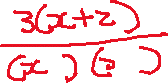 3(x+2)
(x )(2 )